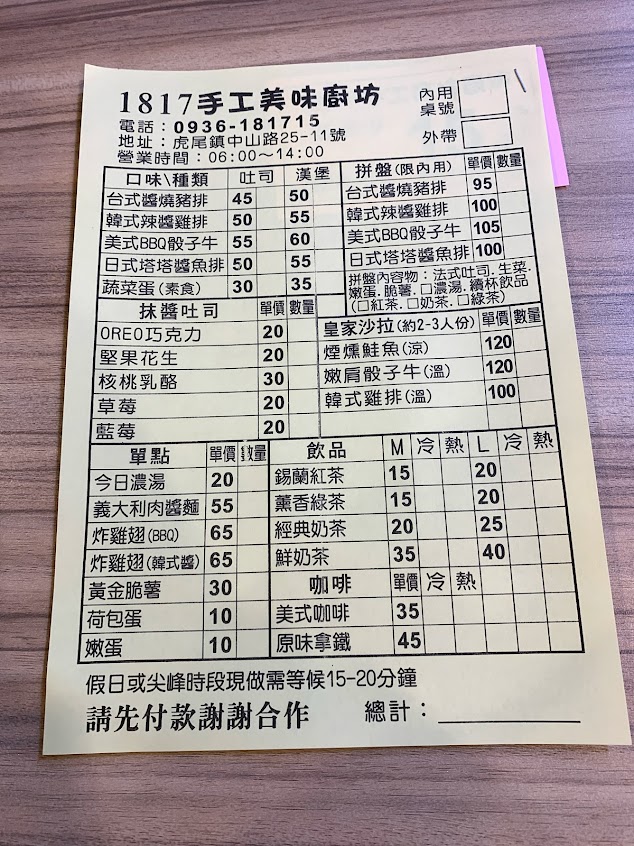 1817手工美味廚坊
電話：0936-181715
地址：虎尾鎮中山路25-11號
營業時間：06:00～14:00
內用
桌號
外帶
口味\種類 吐司 漢堡
台式醬燒豬排 45 50
韓式辣醬雞排 50 55
美式BBQ骰子牛 55 60
日式塔塔醬魚排 50 55
蔬菜蛋(素食) 30 35
抹醬吐司 單價 數量
OREO巧克力 20
堅果花生 20
核桃乳酪 30
草莓 20
藍莓 20
拼盤(限內用) 單價 數量
台式醬燒豬排 95
韓式辣醬雞排 100
美式BBQ骰子牛 105
日式塔塔醬魚排 100
拼盤內容物：法式吐司.生菜.
嫩蛋.脆薯.□濃湯.續杯飲品
(□紅茶.□奶茶.□綠茶)
皇家沙拉(約2-3人份) 單價 數量
煙燻鮭魚(涼) 120
嫩肩骰子牛(溫) 120
韓式雞排(溫) 100
單點 單價 數量
今日濃湯 20
義大利肉醬麵 55
炸雞翅(BBQ) 65
炸雞翅(韓式醬) 65
黃金脆薯 30
荷包蛋 10
嫩蛋 10
飲品 M 冷 熱 L 冷 熱
錫蘭紅茶 15 20
薰香綠茶 15 20
經典奶茶 20 25
鮮奶茶 35 40
咖啡 單價 冷 熱
美式咖啡 35
原味拿鐵 45
假日或尖峰時段現做需等候15-20分鐘
請先付款謝謝合作 總計：